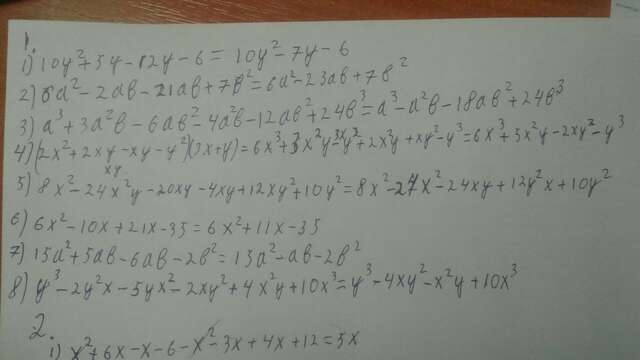 1.
1) 10y²+5y-12y-6=10y²-7y-6
2) 6a²-2ab-21ab+7b²=6a²-23ab+7b²
3) a³+3a²b-6ab²-4a²b-12ab²+24b³=a³-a²b-18ab²+24b³
4) (2x²+2xy-xy-y²)(3x+y)=6x³+3x²y-3xy²+2x²y+xy²-y³=6x³+5x²y-2xy²-y³
xy
5) 8x²-24x²y-20xy-4xy+12xy²+10y²=8x²-24x²-24xy+12y²x+10y²
6) 6x²-10x+21x-35=6x²+11x-35
7) 15a²+5ab-6ab-2b²=15a²-ab-2b²
8) y³-2y²x-5yx²-2xy²+4x²y+10x³=y³-4xy²-x²y+10x³
2.
1) x²+6x-x-6-x²-3x+4x+12=5x